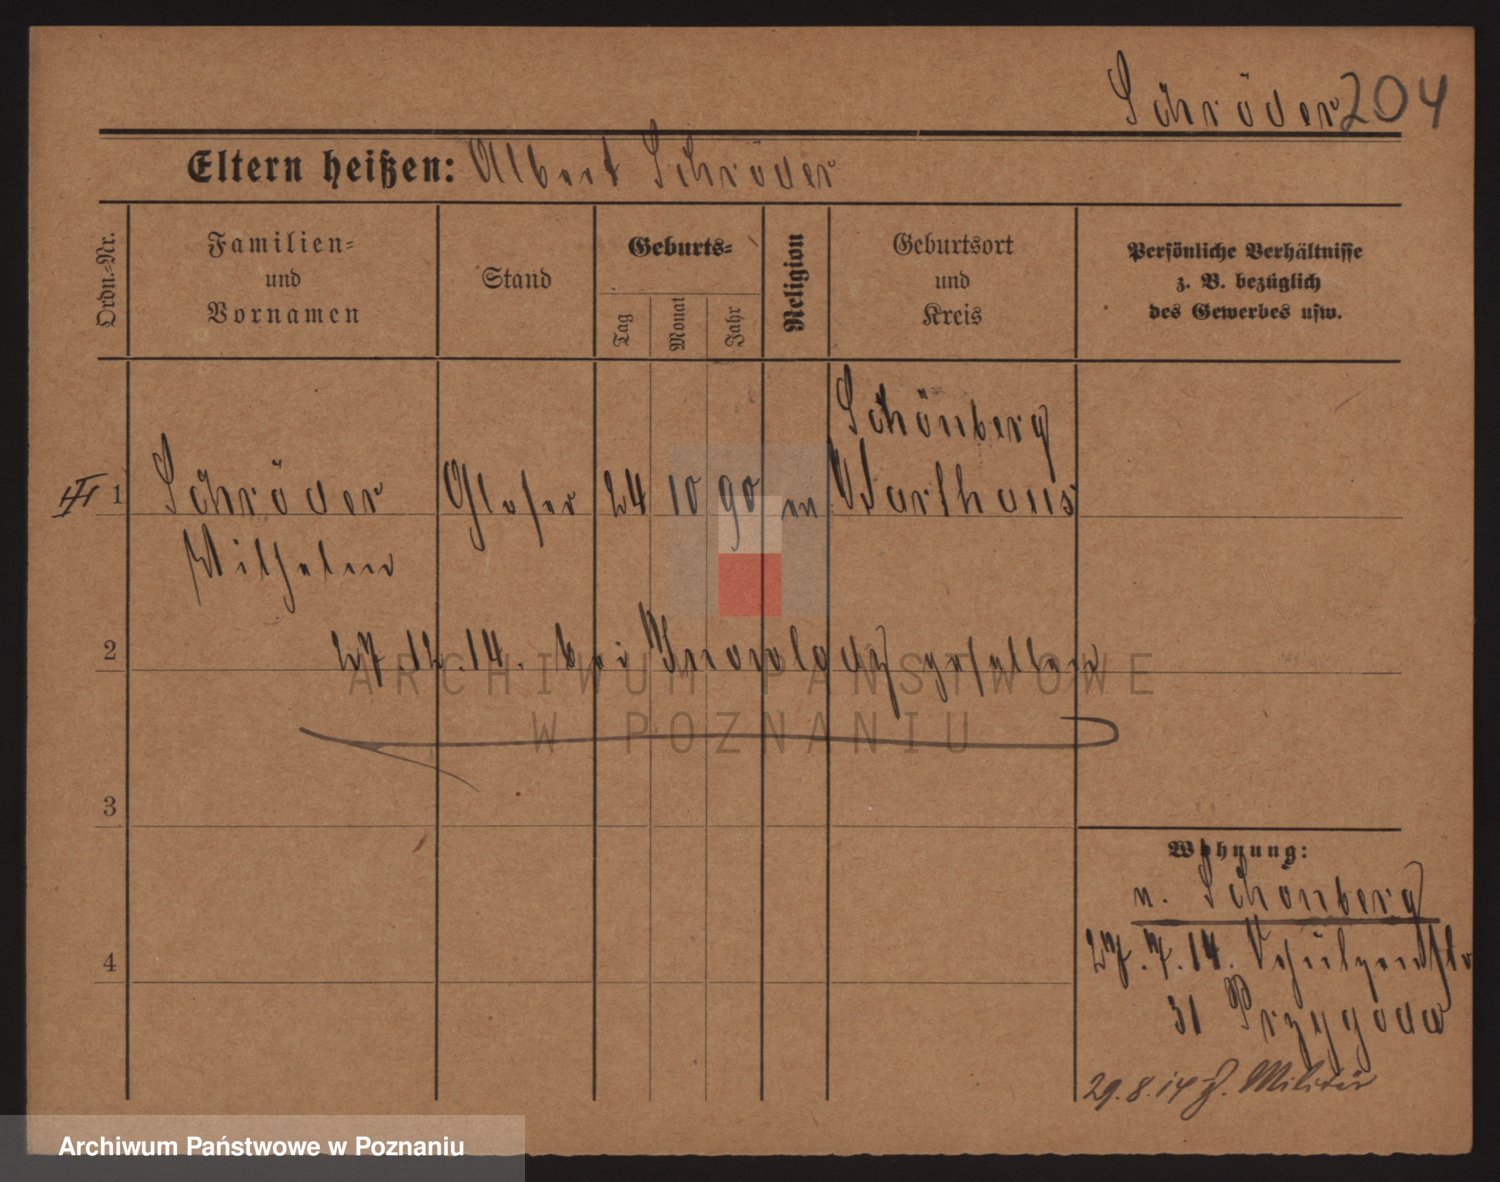 Schröder 204
Eltern heißen: Albert Schröder
Ordn.-Nr.
Familien-
und
Vornamen
Stand
Geburts-
Tag
Monat
Jahr
Religion
Geburtsort
und
Kreis
Persönliche Verhältnisse
z. B. bezüglich
des Gewerbes usw.
Schönberg
III 1 Schröder Glaser 24 10 90 ev Karthaus
Wilhelm
2
27.12.14. bei Inowlodz gefallen
ARCHIWUM PAŃSTWOWE
W POZNANIU
3
Wohnung:
n. Schönberg
4
27.7.14. Schützenstr
31 Przygoda
29.8.14 z. Militär
Archiwum Państwowe w Poznaniu